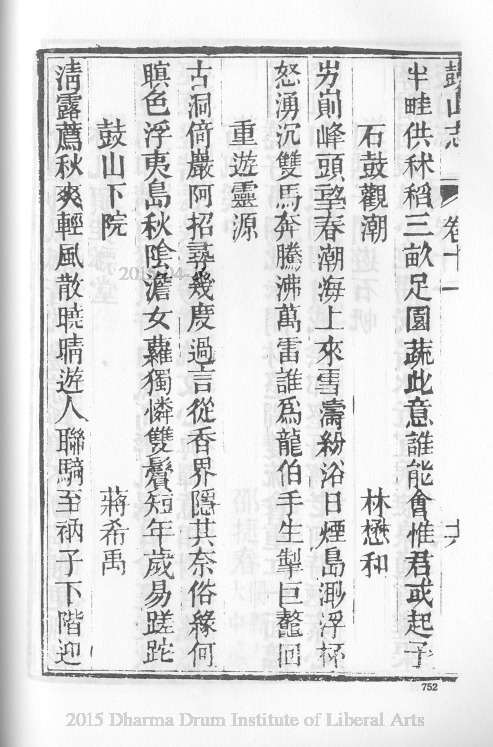 鼓山志 卷十一
半畦供秫稻三畝足園蔬此意誰能會惟君或起予
石鼓觀潮 林懋和
屴崱峰頭望春潮海上來雪濤紛浴日煙島渺浮杯
怒湧沉雙馬奔騰沸萬雷誰爲龍伯手生掣巨鼇回
重遊靈源
古洞倚巖阿招尋幾度過言從香界隱其奈俗緣何
瞑色浮夷島秋陰澹女蘿獨憐雙鬢短年歲易蹉跎
鼓山下院 蔣希禹
清露薦秋爽輕風散曉晴遊人聯騎至衲子下階迎
752
2015 Dharma Drum Institute of Liberal Arts